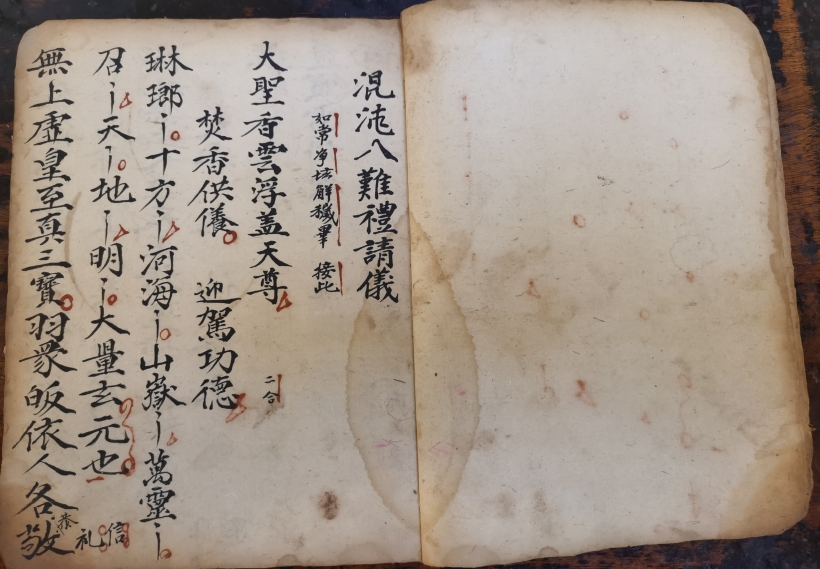 混沌八難禮請儀
如常净坛解穢畢 接此
大聖香雲浮盖天尊 二合
焚香供養 迎駕功德
琳瑯〻十方〻河海〻山嶽〻萬靈〻
召〻天〻地〻明〻大量玄元也 信礼
無上虛皇至真三寶羽眾皈依人各恭敬